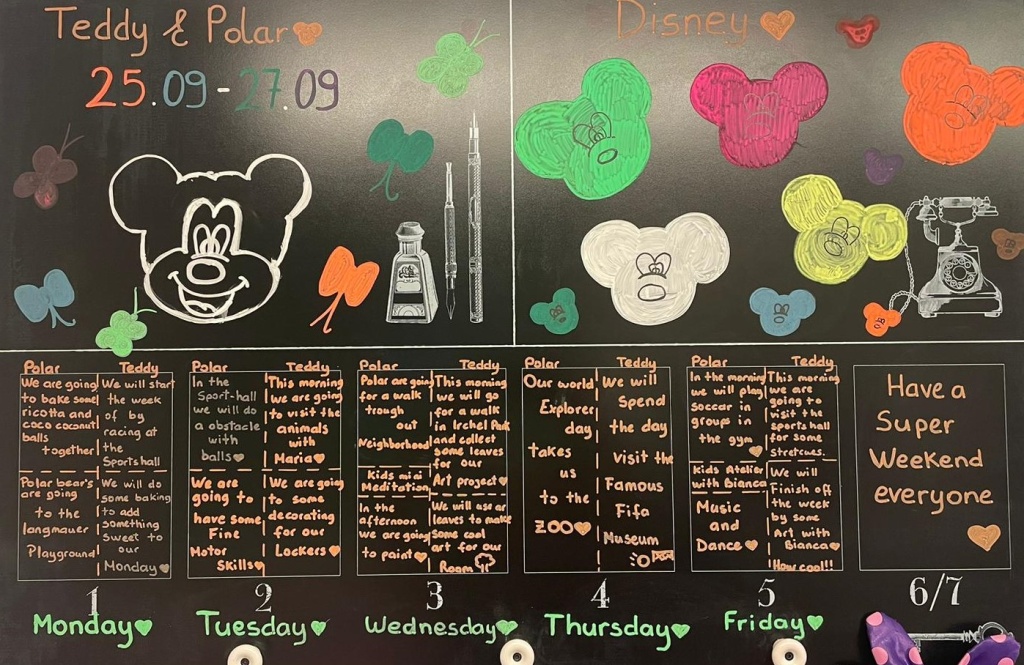 Teddy & Polar
25.09-27.09
Disney
Polar
We are going
to bake some
ricotta and
coco coconut
balls
together
Polar bear's
are going
to the
langmauer
Playground
Teddy
We will start
the week
of by
racing at
the
Sportshall
We will do
some baking
to add
something
sweet to
our
Monday
1
Monday
Polar
In the
Sport-hall
we will do
a obstacle
with
balls
We are
going to
have some
Fine
Motor
Skills
Teddy
This morning
we are going
to visit the
animals
with
Maria
We are going
to some
decorating
for our
Lockers
2
Tuesday
Polar
Polar are going
for a walk
trough
out
Neighborhood
Kids mini
Meditation
In the
afternoon
we are going
to paint
Teddy
This morning
we will go
for a walk
in Irchel Park
and collect
some leaves
for our
Art project
We will use our
leaves to make
some cool
art for our
Room
3
Wednesday
Polar
Our world
Explorer
day
takes
us
to the
ZOO
Teddy
We will
Spend
the day
Visit the
Famous
Fifa
Museum
4
Thursday
Polar
In the morning
we will play
soccar in
groups in
the gym
Kids Atelier
with Bianca
Music
and
Dance
Teddy
This morning
we are
going to
visit the
sports hall
for some
stretches.
We will
Finish off
the week
by some
Art with
Bianca
How cool!!
5
Friday
Have a
Super
Weekend
everyone
6/7